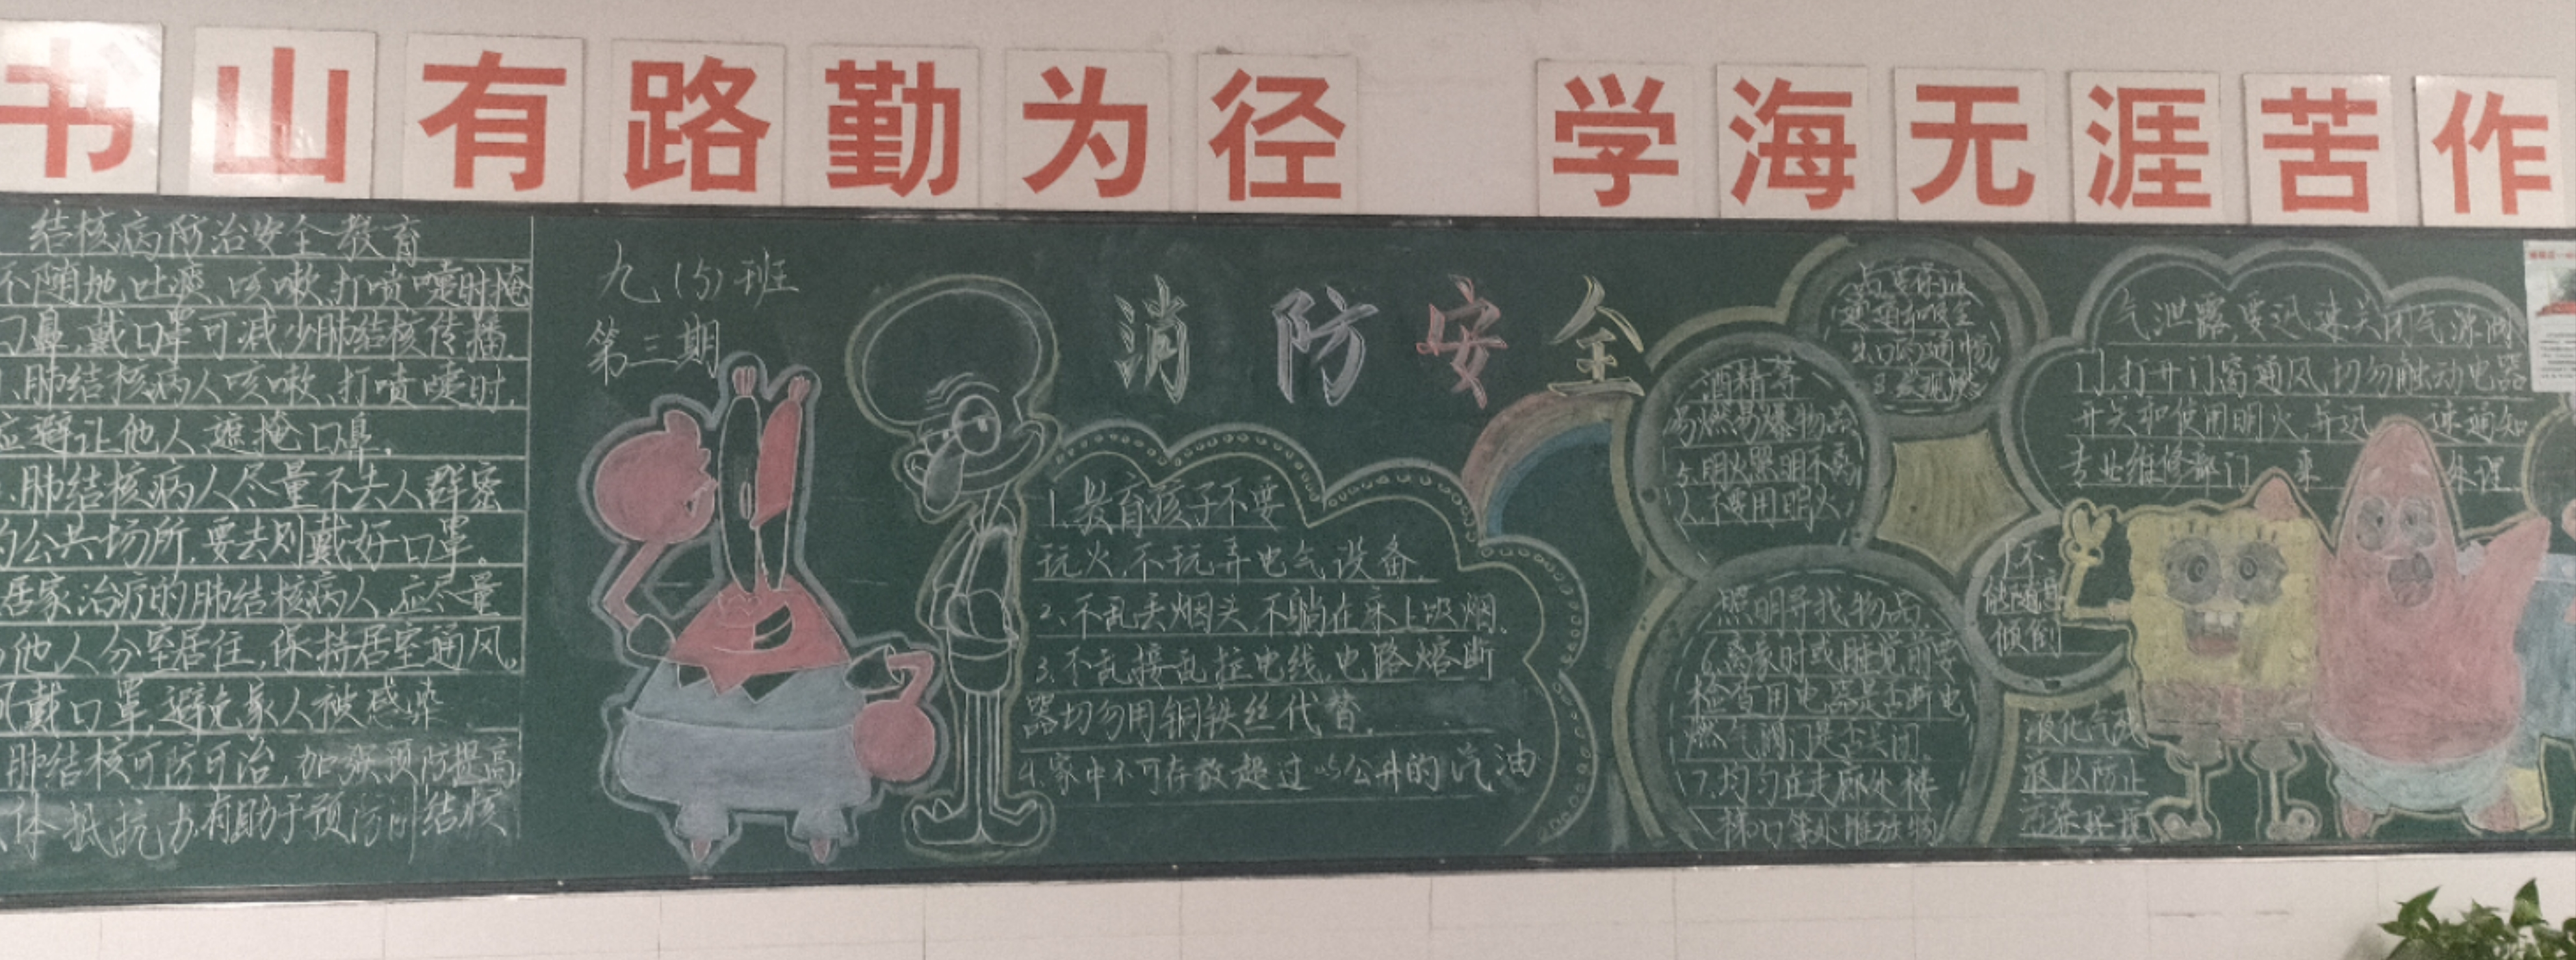 书山有路勤为径 学海无涯苦作
结核病防治安全教育
不随地吐痰,咳嗽,打喷嚏时掩
口鼻,戴口罩可减少肺结核传播.
肺结核病人咳嗽、打喷嚏时,
应避让他人、遮掩口鼻.
肺结核病人尽量不去人群密
的公共场所,要去则戴好口罩。
居家治疗的肺结核病人,应尽量
他人分室居住,保持居室通风。
戴口罩,避免家人被感染
肺结核可防可治,加强预防提高
体抵抗力,有助于预防 结核
九(5)班
第三期
消防安全
1.教育孩子不要
玩火,不玩弄电气设备.
2、不乱丢烟头,不躺在床上吸烟.
3.不乱接乱拉电线,电路熔断
器切勿用铜铁丝代替.
4.家中不可存放超过 公升的汽油
酒精等
易燃易爆物品
5.明火照明不离
人,不要用明火
照明寻找物品.
6.离家时或睡觉前要
检查用电器是否断电,
燃气阀门是否关闭.
7.均匀在走廊处楼
梯口等处堆放物
出口的通畅,
8.发现燃
气泄露,要迅速关闭气源阀
门,打开门窗通风,切勿触动电器
开关和使用明火,并迅 速通知
专业维修部门 来 处理.
不
能随意
倾倒
液化气残
液以防止
污染环境